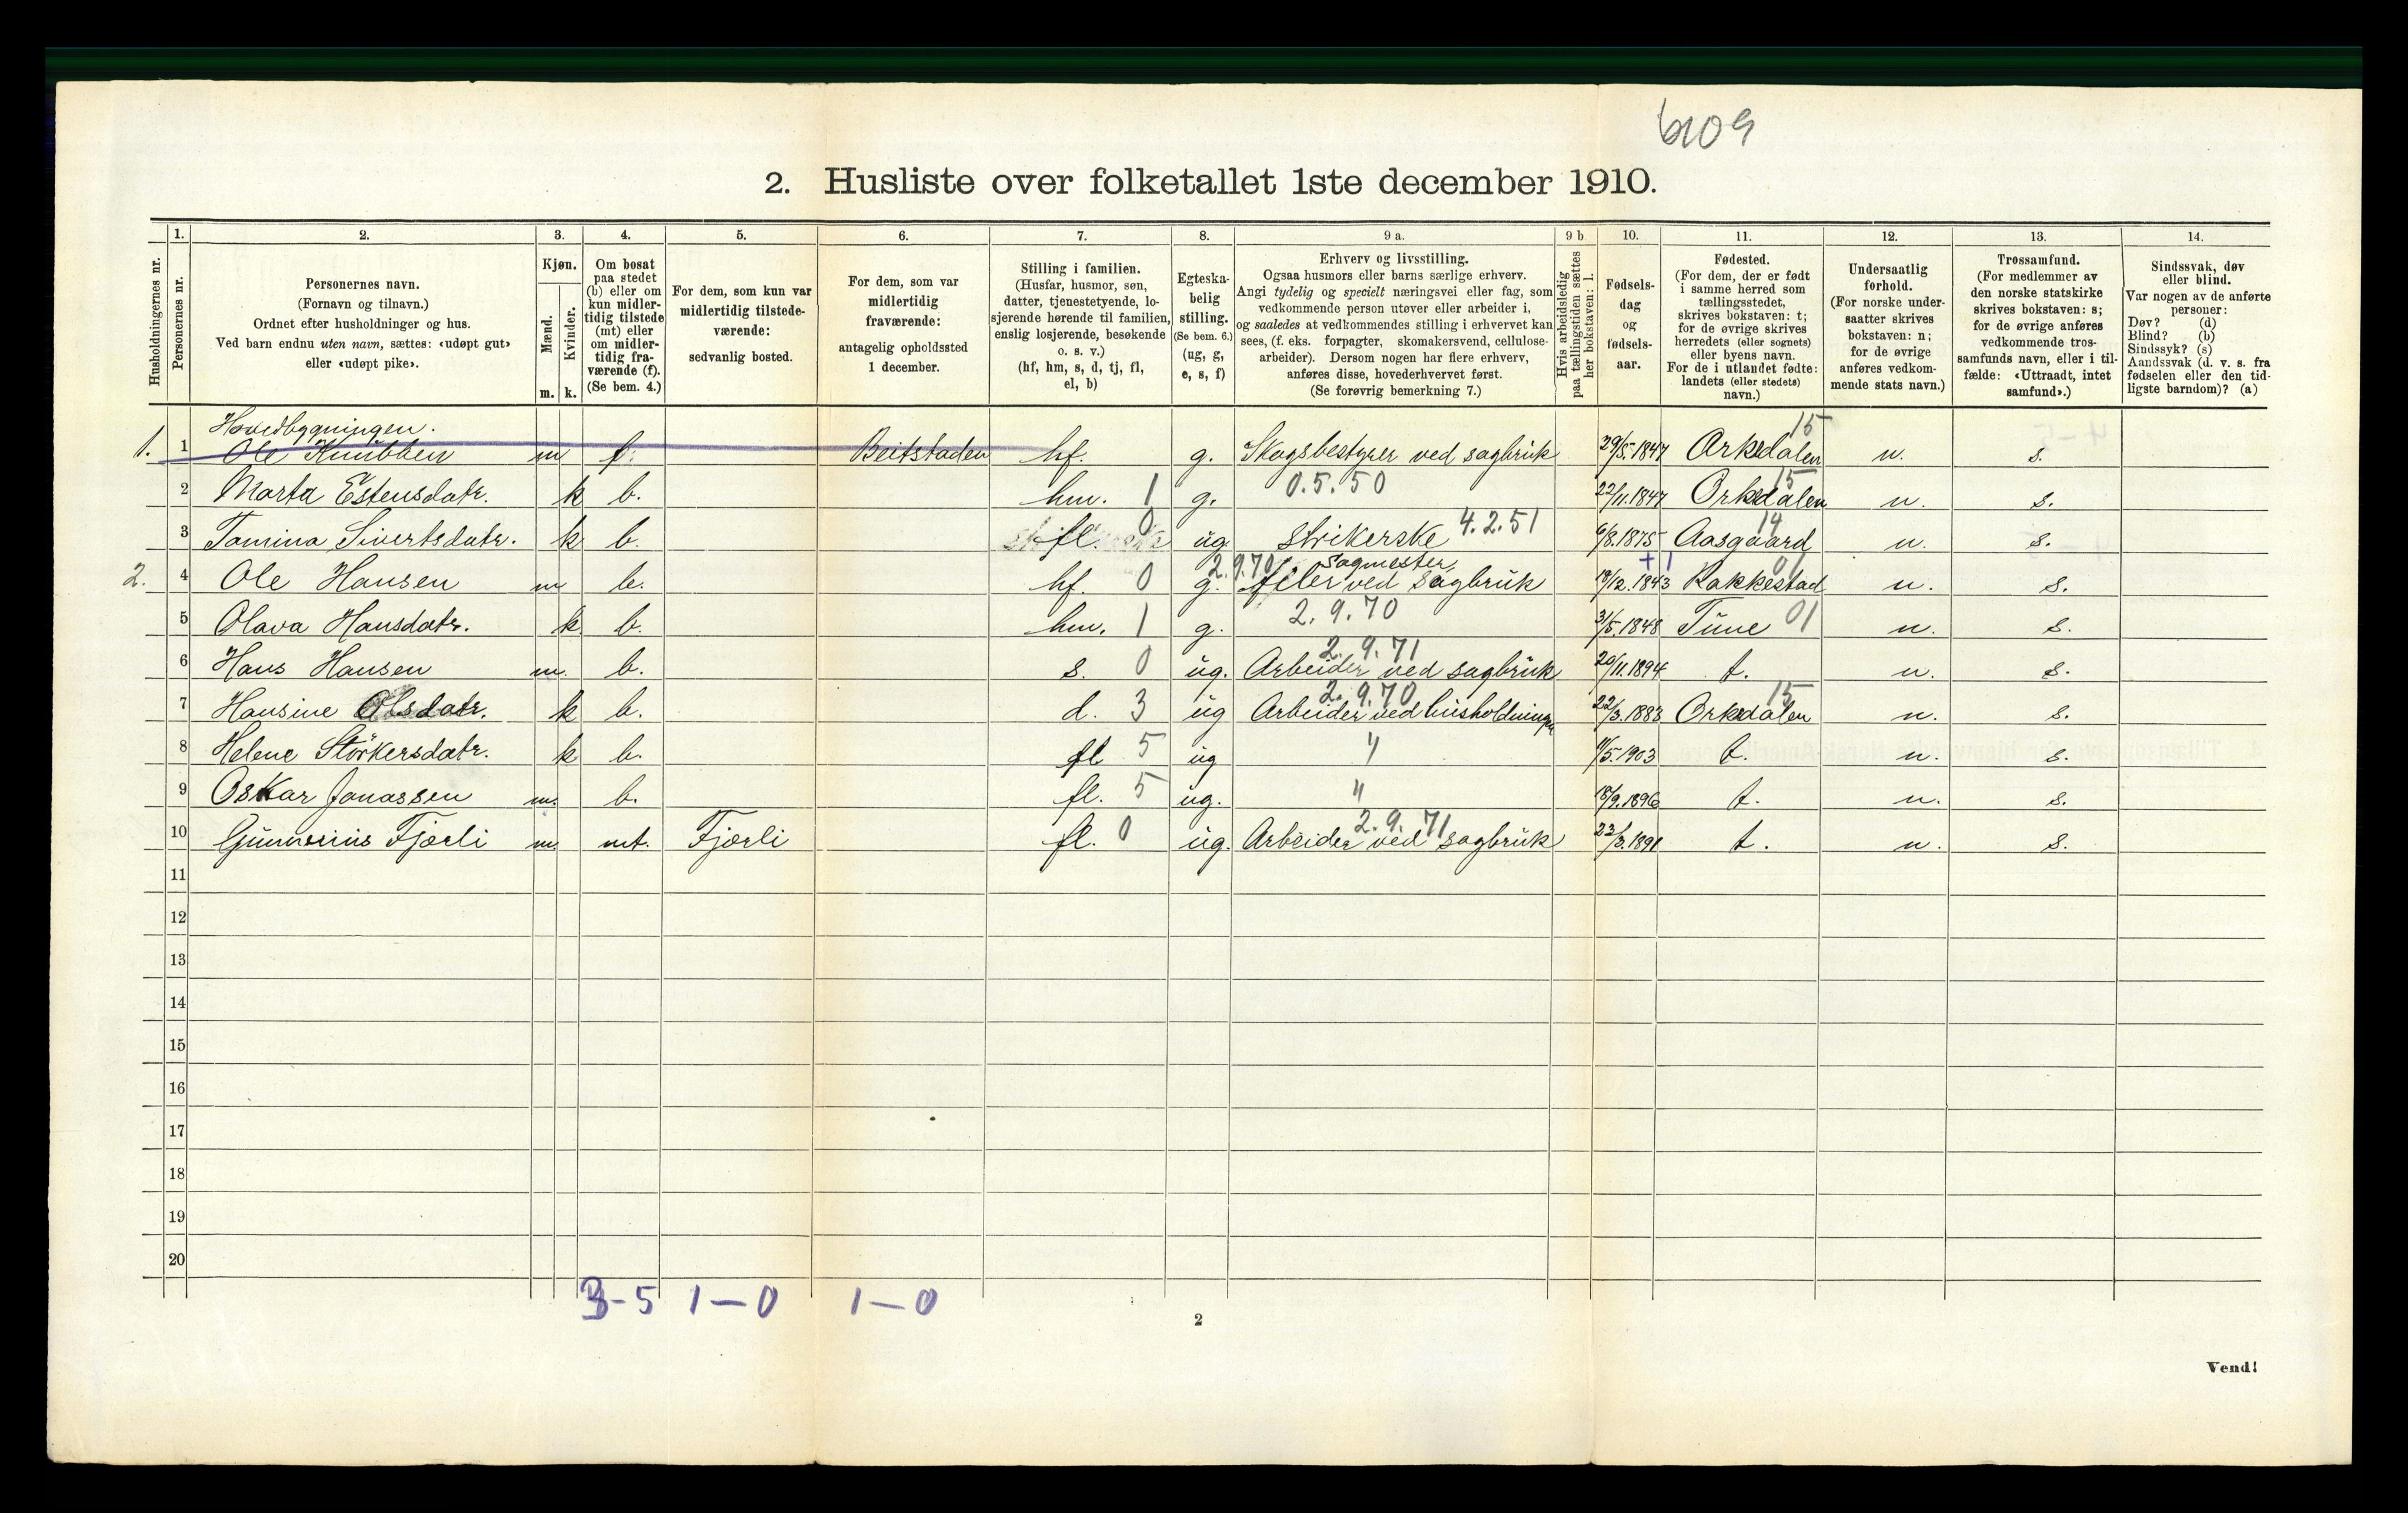 6109
2. Husliste over folketallet 1ste december 1910.
Husholdningernes nr.
1.
Personernes nr.
2.
Personernes navn.
(Fornavn og tilnavn.)
Ordnet efter husholdninger og hus.
Ved barn endnu uten navn, sættes: «udøpt gut»
eller «udøpt pike».
3.
Kjøn.
Mænd.
Kvinder.
m. k.
4.
Om bosat
paa stedet
(b) eller om
kun midler-
tidig tilstede
(mt) eller
om midler-
tidig fra-
værende (f).
(Se bem. 4.)
5.
For dem, som kun var
midlertidig tilstede-
værende:
sedvanlig bosted.
6.
For dem, som var
midlertidig
fraværende:
antagelig opholdssted
1 december.
7.
Stilling i familien.
(Husfar, husmor, søn,
datter, tjenestetyende, lo-
sjerende hørende til familien,
enslig losjerende, besøkende
o. s. v.)
(hf, hm, s, d, tj, fl,
el, b)
8.
Egteska-
belig
stilling.
(Se bem. 6.)
(ug, g,
e, s, f)
9 a.
Erhverv og livsstilling.
Ogsaa husmors eller barns særlige erhverv.
Angi tydelig og specielt næringsvei eller fag, som
vedkommende person utøver eller arbeider i,
og saaledes at vedkommendes stilling i erhvervet kan
sees, (f. eks. forpagter, skomakersvend, cellulose-
arbeider). Dersom nogen har flere erhverv,
anføres disse, hovederhvervet først.
(Se forøvrig bemerkning 7.)
9 b
Hvis arbeidsledig
paa tællingstiden sættes
her bokstaven: l.
10.
Fødsels-
dag
og
fødsels-
aar.
11.
Fødested.
(For dem, der er født
i samme herred som
tællingsstedet,
skrives bokstaven: t;
for de øvrige skrives
herredets (eller sognets)
eller byens navn.
For de i utlandet fødte:
landets (eller stedets)
navn.)
12.
Undersaatlig
forhold.
(For norske under-
saatter skrives
bokstaven: n;
for de øvrige
anføres vedkom-
mende stats navn.)
13.
Trossamfund.
(For medlemmer av
den norske statskirke
skrives bokstaven: s;
for de øvrige anføres
vedkommende tros-
samfunds navn, eller i til-
fælde: «Uttraadt, intet
samfund».)
14.
Sindssvak, døv
eller blind.
Var nogen av de anførte
personer:
Døv? (d)
Blind? (b)
Sindssyk? (s)
Aandssvak (d. v. s. fra
fødselen eller den tid-
ligste barndom)? (a)
Hovedbygningen. 15
1. 1 Ole Knubben m f. Beitstaden hf. g. Skogsbestyrer ved sagbruk 29/5.1847 Arkedalen n. s.
0.5.50 15
2 Marta Estensdatr. k b. hm. 1 g. 22/11.1847 Orkedalen n. s.
4.2.51 14
3 Tomina Sivertsdatr. k b. fl. 0 ug strikerske 6/8.1875 Aasgaard n. s.
2.9.70 Sagmester + 1 01
2. 4 Ole Hansen m b. hf. 0 g. filer ved sagbruk 18/12.1843 Rakkestad n. s.
2.9.70
5 Olava Hansdatr. k b. hm. 1 g. 31/5.1848 Tune 01 n. s.
2.9.71
6 Hans Hansen m. b. s. 0 ug. Arbeider ved sagbruk 20/11.1894 t. n. s.
2.9.70 15
7 Hansine Olsdatr. k b. d. 3 ug Arbeider ved husholdningen 22/3.1883 Orkedalen n. s.
8 Helene Störkersdatr. k b. fl 5 ug " 11/5.1903 t. n. s.
9 Oskar Jonassen m. b. fl. 5 ug. " 18/9.1896 t. n. s.
2.9.71
10 Gunnerius Fjærli m. mt. Fjærli fl. 0 ug. Arbeider ved sagbruk 23/3.1891 t. n. s.
11
12
13
14
15
16
17
18
19
20
3-5 1-0 1-0
2
Vend!